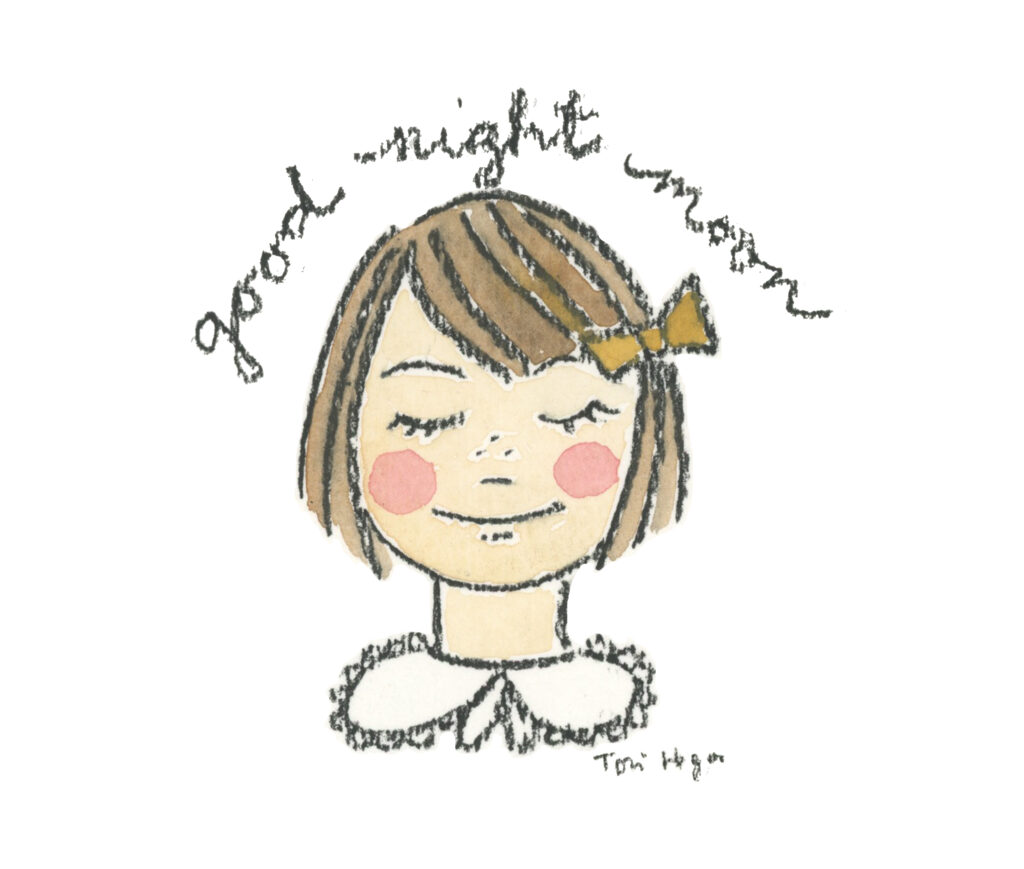 good night moon
Tori